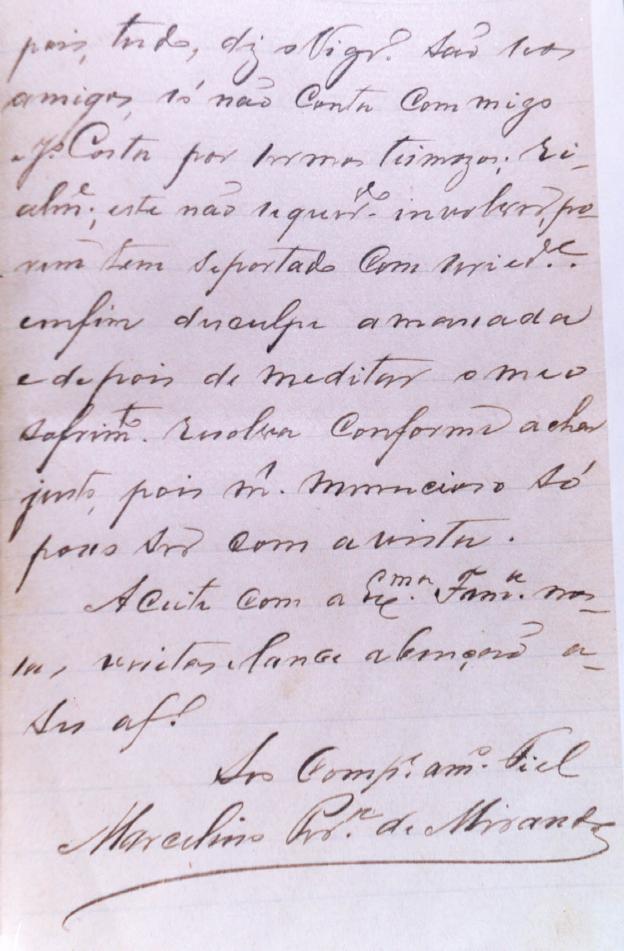 pois, tudo, diz o Vigr.º são seos
amigos, só não conta commigo
e Jº Costa por sermos teimozos; Ri-
alm.e, este não se quer involver, po-
rem tem se portado com seried.e.
emfim desculpe a massada
e depois de meditar o meo
sofrim.to. Resolva conforme achar
justo, pois m.s. minucioso só
pouso ser com a vista.
Aceite com a Ex.ma Fam.a nos-
sas, visitas e lance a benção a-
seu af.º
Seo Comp.e am.º Fiel
Marcelino Per.ra de Miranda